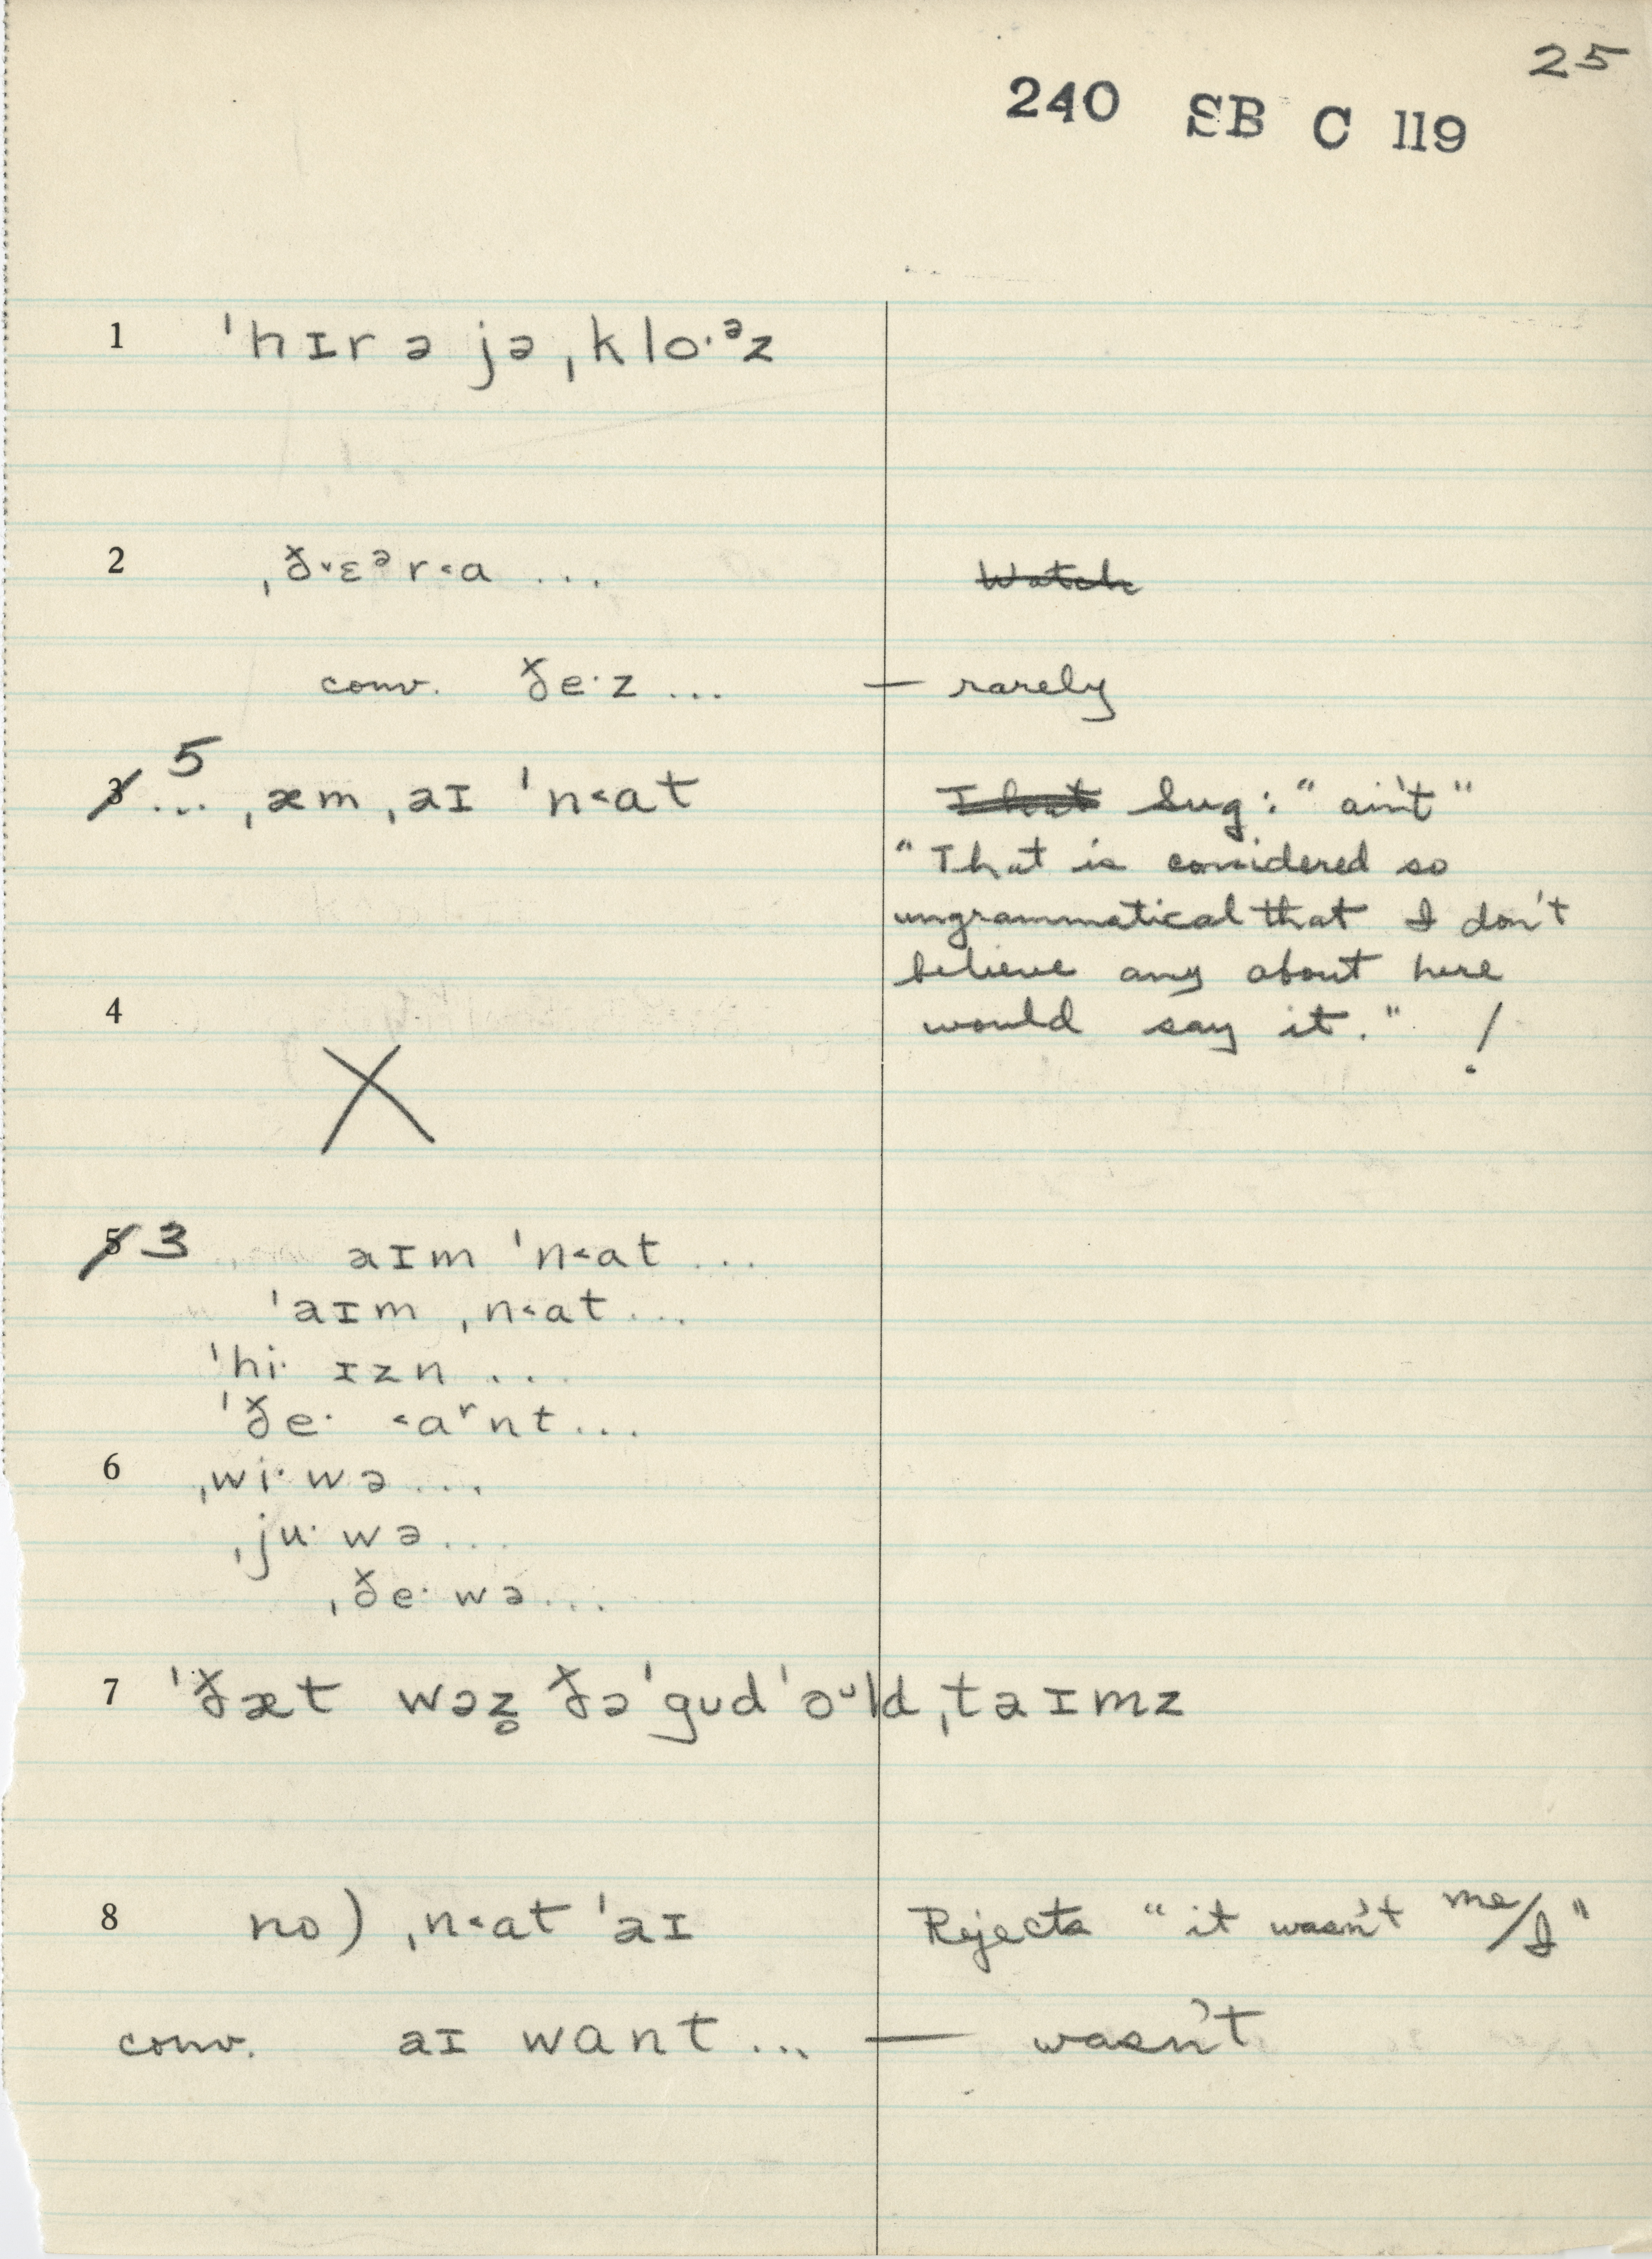 25
240 SB C 119
1 ˈhɪr ə jə ˌklo·ᵊz
2 ˌð˅ɛᵊr˂a ...
conv. ðe·z ... — rarely
3 5 ... ˌæm ˌaɪ ˈn˂at Sug: "ain't"
"That is considered so
ungrammatical that I don't
believe any about here
would say it." !
4
X
5 3 aɪm ˈn˂at ...
ˈaɪm ˌn˂at ...
ˈhi· ɪzn ...
ˈðe· ˂aʳnt ...
6 ˌwi· wə ...
ˌju· wə ...
ˌðe· wə ...
7 ˈðæt wəz̥ ðə ˈgud ˈoᵘld ˌtaɪmz
8 no) ˌn˂at ˈaɪ Rejects "it wasn't me/I"
conv. aɪ want ... — wasn't